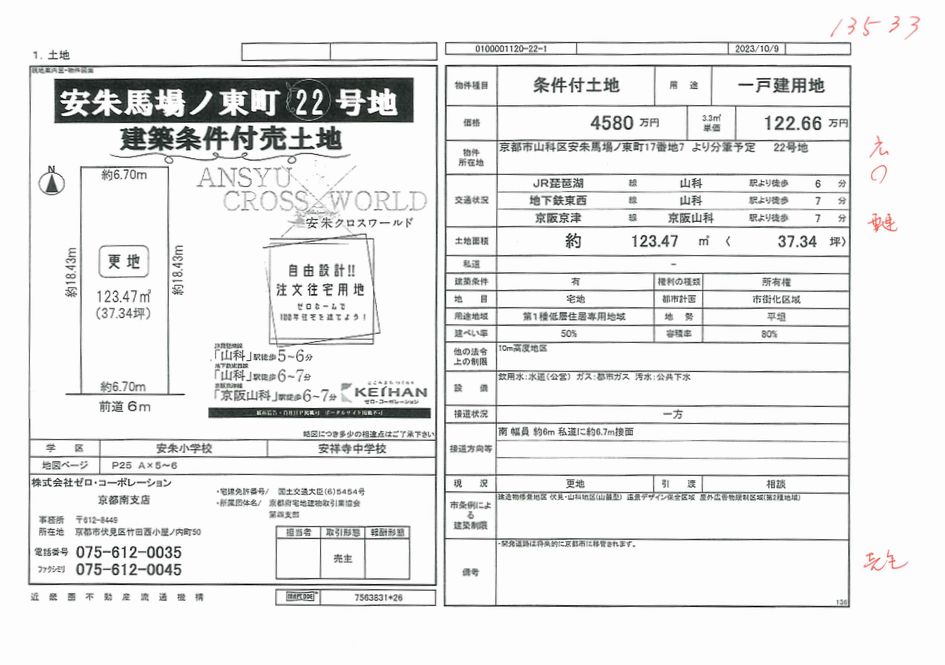 13533
1. 土地
現地案内図・物件図面
安朱馬場ノ東町 22 号地
建築条件付売土地
N
約6.70m
ANSYU
CROSS WORLD
安朱クロスワールド
約18.43m
約18.43m
更地
123.47㎡
(37.34坪)
自由設計!!
注文住宅用地
ゼロホームで
100年住宅を建てよう!
JR琵琶湖線
「山科」駅徒歩5~6分
地下鉄東西線
「山科」駅徒歩6~7分
京阪京津線
「京阪山科」駅徒歩6~7分
KEIHAN
ゼロ・コーポレーション
約6.70m
前道6m
略図につき多少の相違点はご了承下さい
学 区 安朱小学校 安祥寺中学校
地図ページ P25 A×5~6
株式会社ゼロ・コーポレーション
京都南支店
・宅建免許番号/ 国土交通大臣(6)5454号
・所属団体名/ 京都府宅地建物取引業協会
第四支部
事務所 〒612-8449
所在地 京都市伏見区竹田西小屋ノ内町50
電話番号 075-612-0035
ファクシミリ 075-612-0045
担当者 取引形態 報酬形態
売主
近畿圏不動産流通機構
MAPCODE 7563831*26
0100001120-22-1 2023/10/9
物件種目 条件付土地 用途 一戸建用地
価格 4580 万円 3.3㎡単価 122.66 万円
物件所在地 京都市山科区安朱馬場ノ東町17番地7 より分筆予定 22号地
交通状況 JR琵琶湖 線 山科 駅より徒歩 6 分
地下鉄東西 線 山科 駅より徒歩 7 分
京阪京津 線 京阪山科 駅より徒歩 7 分
土地面積 約 123.47 ㎡ ( 37.34 坪)
私道 -
建築条件 有 権利の種類 所有権
地 目 宅地 都市計画 市街化区域
用途地域 第1種低層住居専用地域 地 勢 平坦
建ぺい率 50% 容積率 80%
他の法令上の制限 10m高度地区
設 備 飲用水:水道(公営) ガス:都市ガス 汚水:公共下水
接道状況 一方
接道方向等 南 幅員 約6m 私道に約6.7m接面
現 況 更地 引 渡 相談
市条例による建築制限 建造物修景地区 伏見・山科地区(山麓型) 遠景デザイン保全区域 屋外広告物規制区域(第2種地域)
備考 ・開発道路は将来的に京都市に移管されます。
136